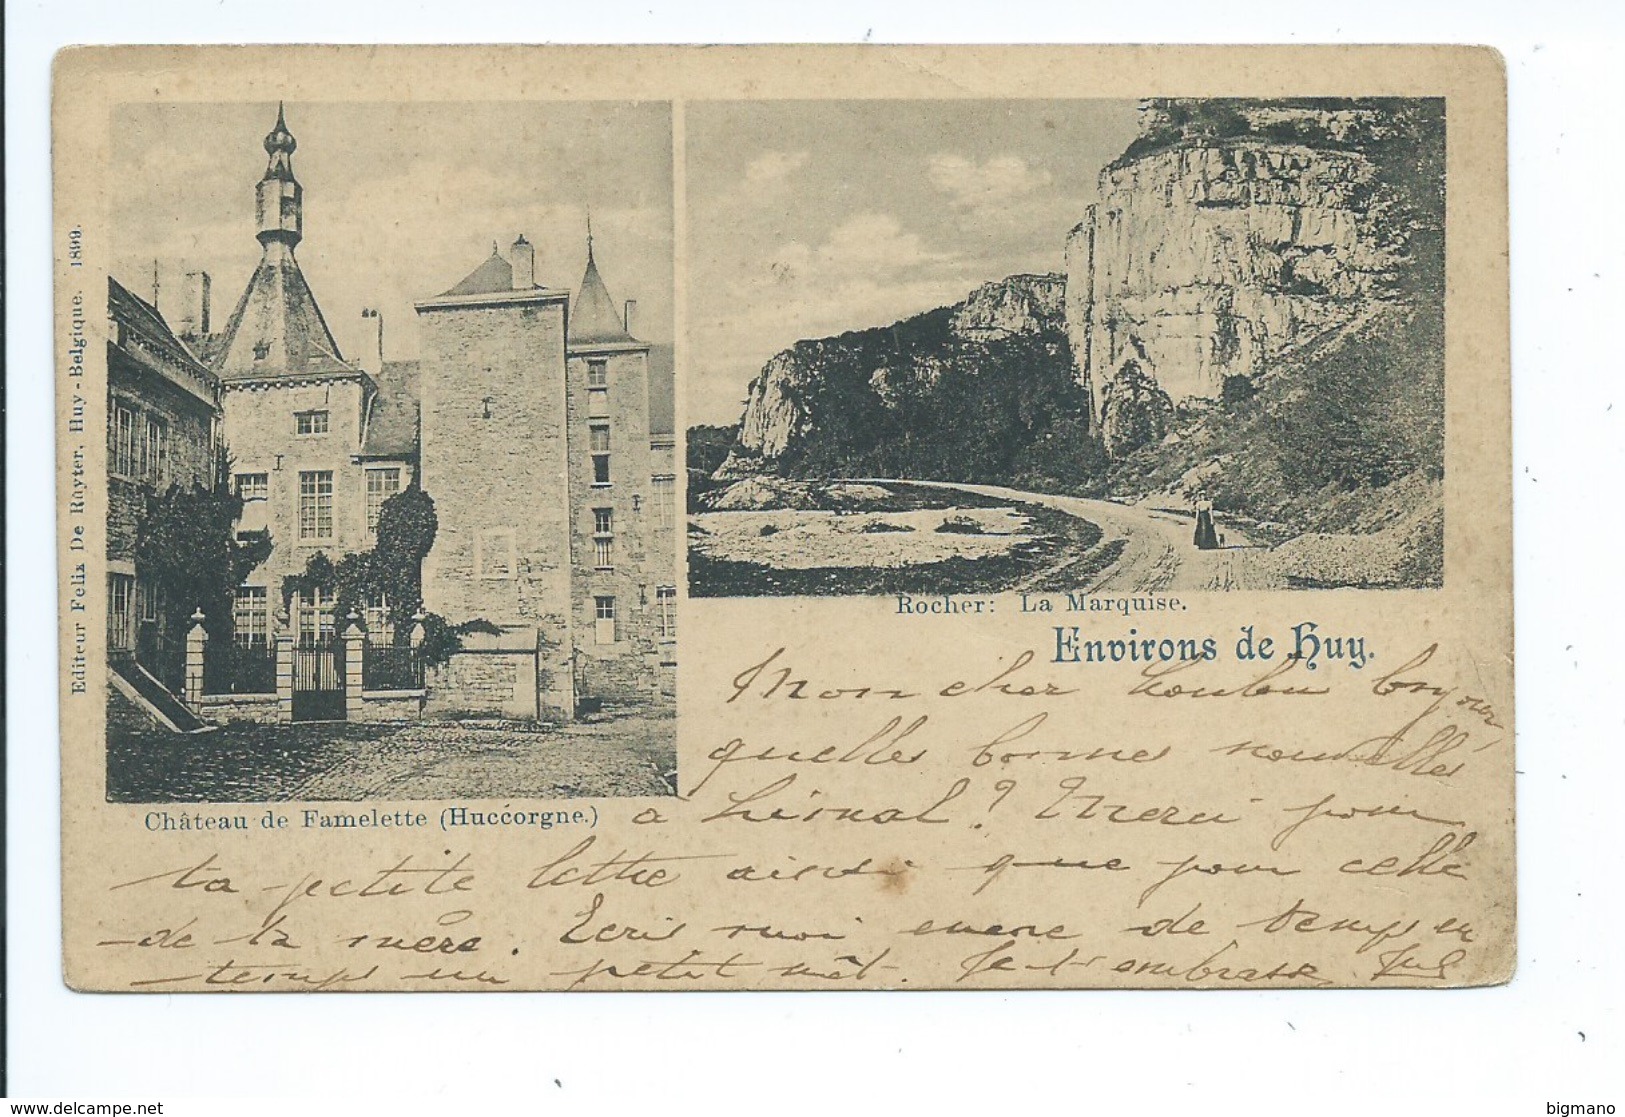 Editeur Felix De Rayter, Huy - Belgique. 1899.
Château de Famelette (Huccorgne.)
Rocher: La Marquise.
Environs de Huy.
Mon cher
quelles bonnes nouvelles
à ? Merci pour
ta petite lettre ainsi que pour celle
de ta mère. Ecris moi encore de temps en
temps un petit mot. Je t'embrasse
www.delcampe.net
bigmano